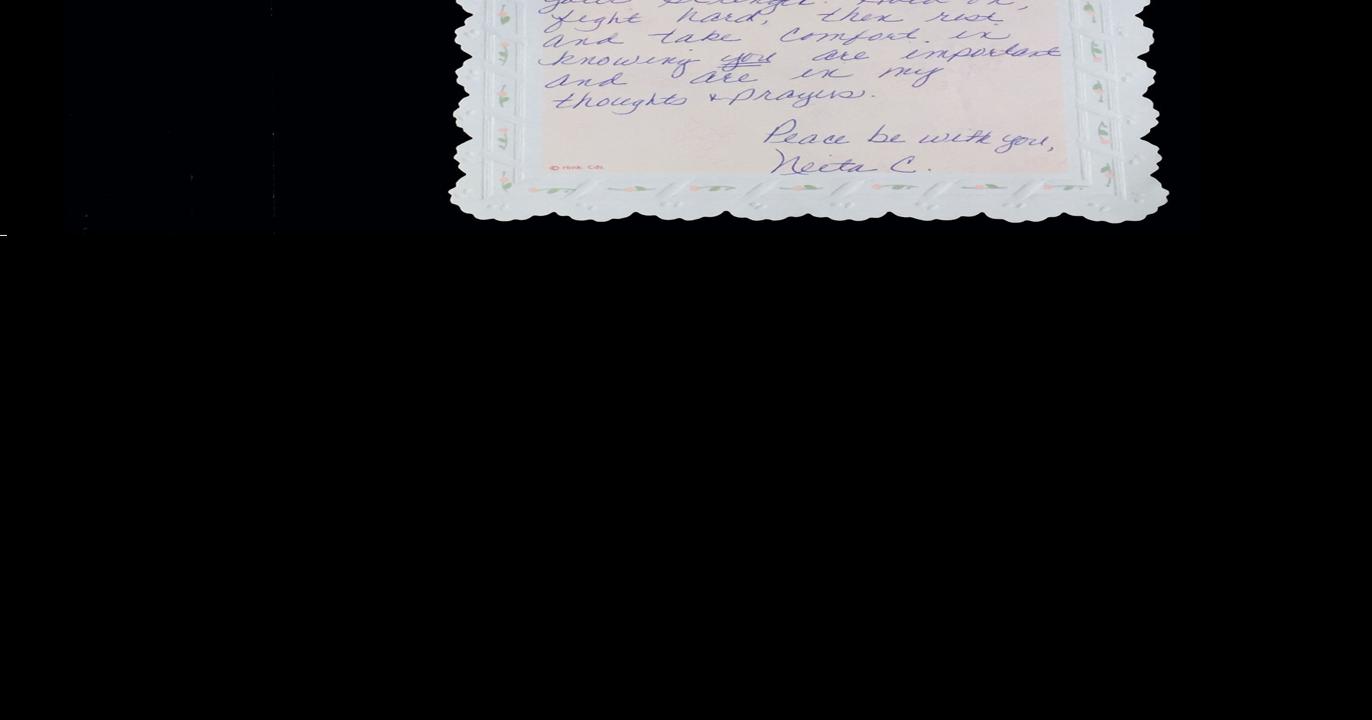 your strength. Hold on,
fight hard, then rest
and take comfort in
knowing you are important
and are in my
thoughts & prayers.
Peace be with you,
Neita C.